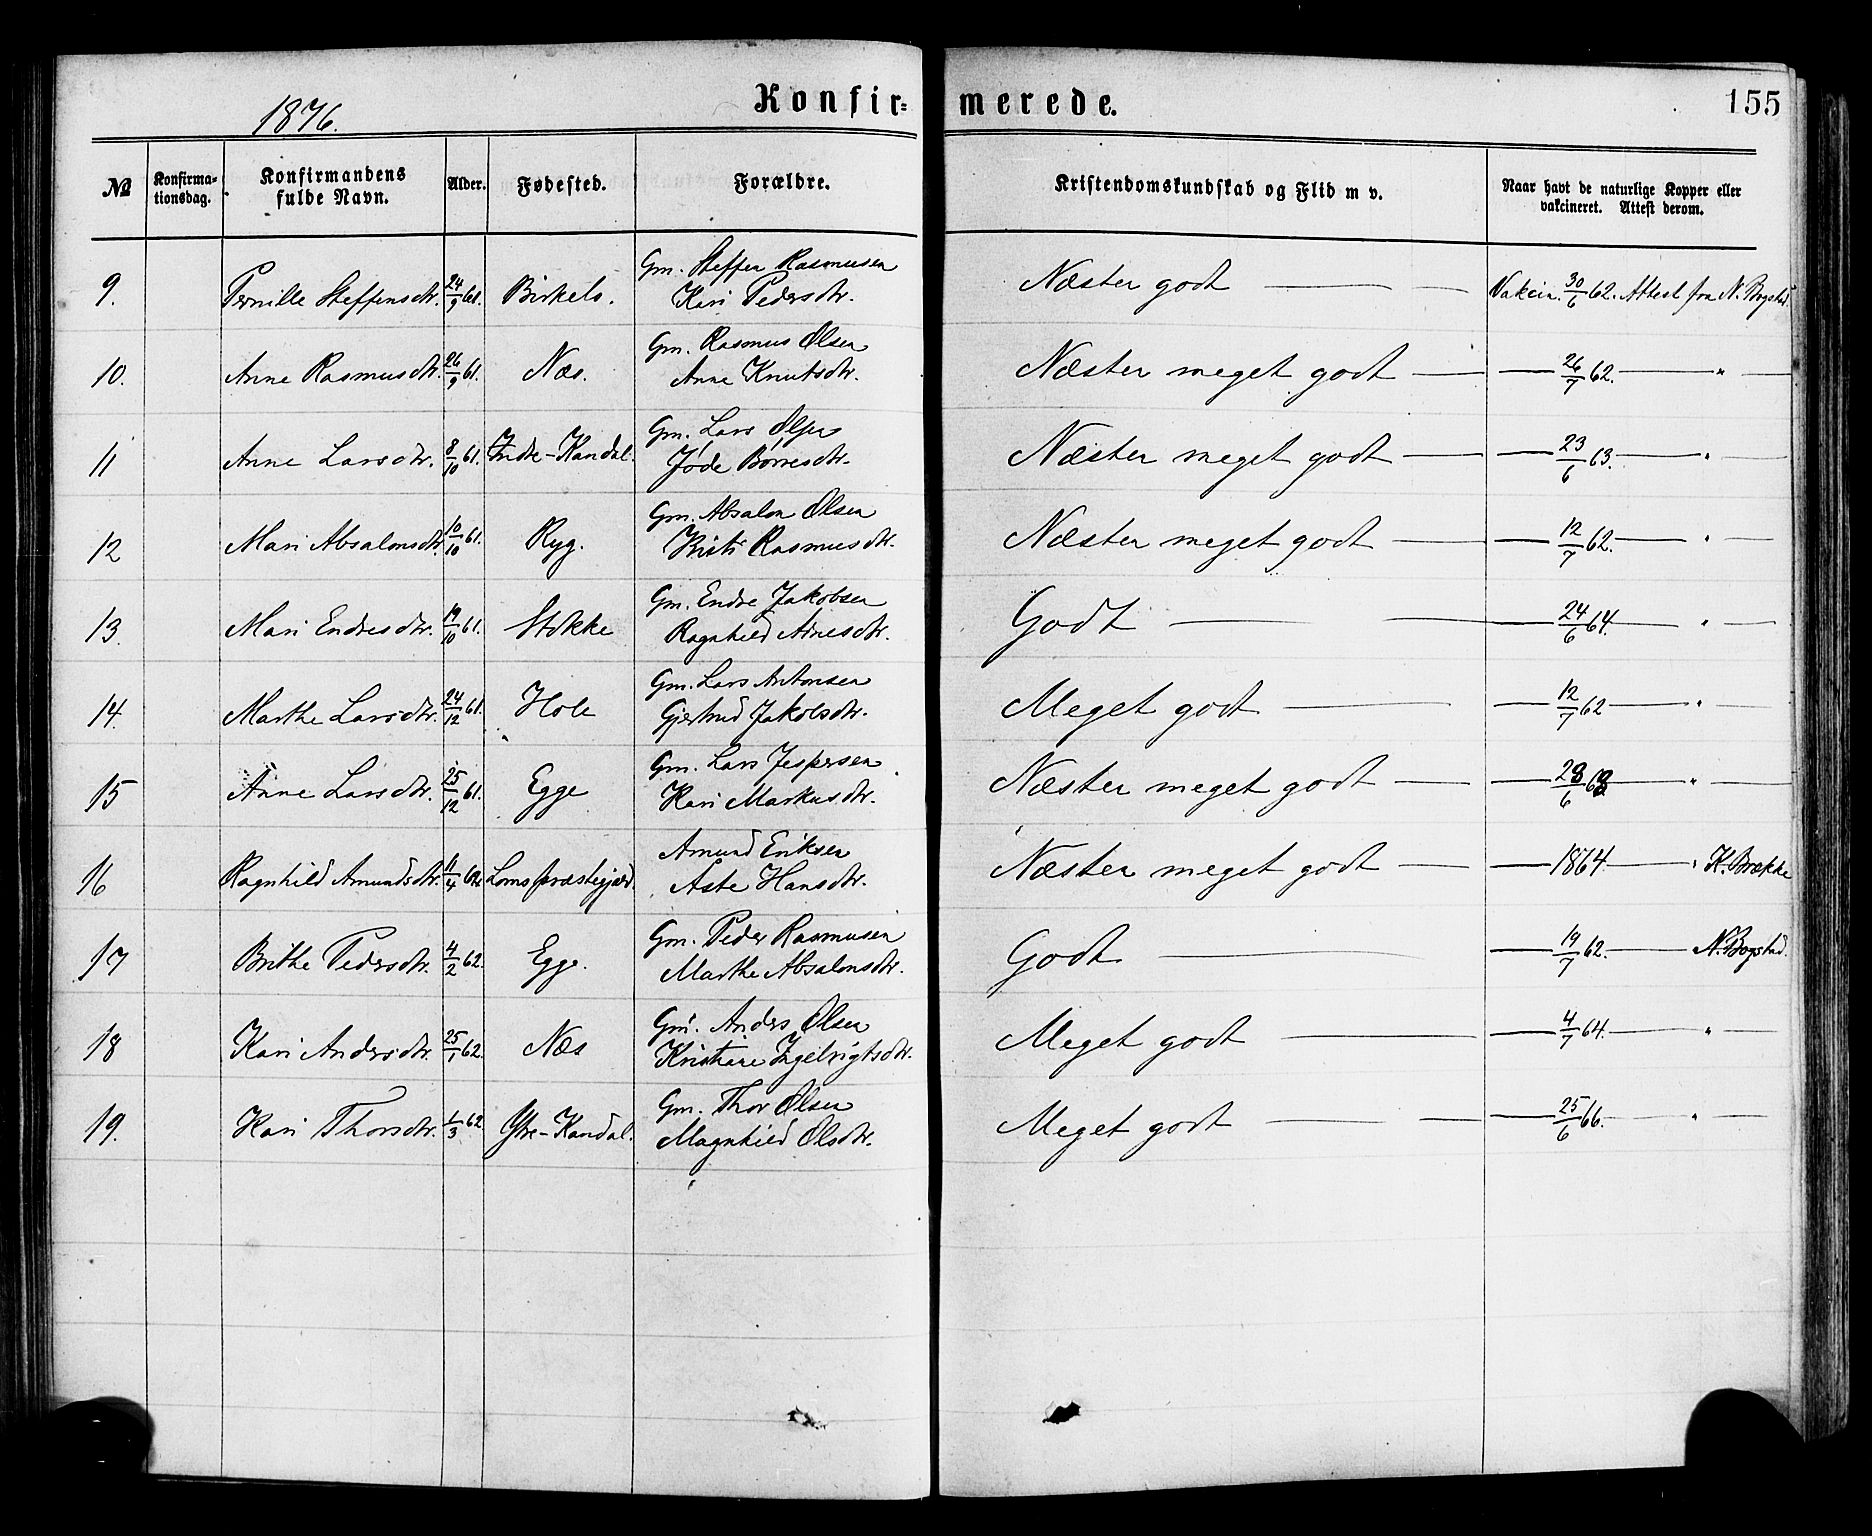 1876. Konfir= merede. 155
№ Konfirma=tionsdag. Konfirmandens fulde Navn. Alder. Fødested. Forældre. Kristendomskundskab og Flid m v. Naar havt de naturlige Kopper eller vakcineret. Attest derom.
Gm. Steffen Rasmussen
9. Pernille Steffensdtr. 24/9 61. Birkelo. Kari Pedersdtr. Næsten godt — — Vakcin. 30/6 62. Attest fra N. Bogstad.
Gm. Rasmus Olsen
10. Anne Rasmusdtr. 26/9 61. Næs. Anne Knutsdtr. Næsten meget godt — — 26/7 62. — " —
Gm. Lars Olsen
11 Anne Larsdtr. 8/10 61. Indre-Kandal. Jøde Børresdtr. Næsten meget godt — — 23/6 63. — " —
Gm. Absalon Olsen
12 Mari Absalonsdtr 10/10 61. Ryg. Kristi Rasmusdtr. Næsten meget godt — — 12/7 62. — " —
Gm. Endre Jakobsen
13. Mari Endresdtr. 19/10 61. Stokke Ragnhild Arnesdtr. Godt — — — 24/6 64. — " —
Gm. Lars Antonsen
14. Marthe Larsdtr. 24/12 61. Hole Gjertrud Jakobsdtr. Meget godt — — 12/7 62 — " —
Gm. Lars Jespersen
15 Anne Larsdtr. 25/12 61. Egge Kari Markusdtr. Næsten meget godt — — 28/6 63 — " —
Amund Eriksen
16 Ragnhild Amundsdtr. 11/4 62. Loms præstegjæld. Aste Hansdtr. Næsten meget godt — — 1864 — " K. Brække
Gm. Peder Rasmusen
17 Brithe Pedersdtr. 4/2 62. Egge. Marthe Absalonsdtr. Godt — — 19/7 62. — N. Bogstad.
Gm. Anders Olsen
18 Kari Andersdtr. 25/1 62. Næs Kristiane Ingelrigtsdtr. Meget godt — — 4/7 64. — " —
Gm. Thor Olsen
19. Kari Thorsdtr. 1/3 62 Ytre-Kandal. Magnhild Olsdtr. Meget godt — — — 25/6 66. — " —